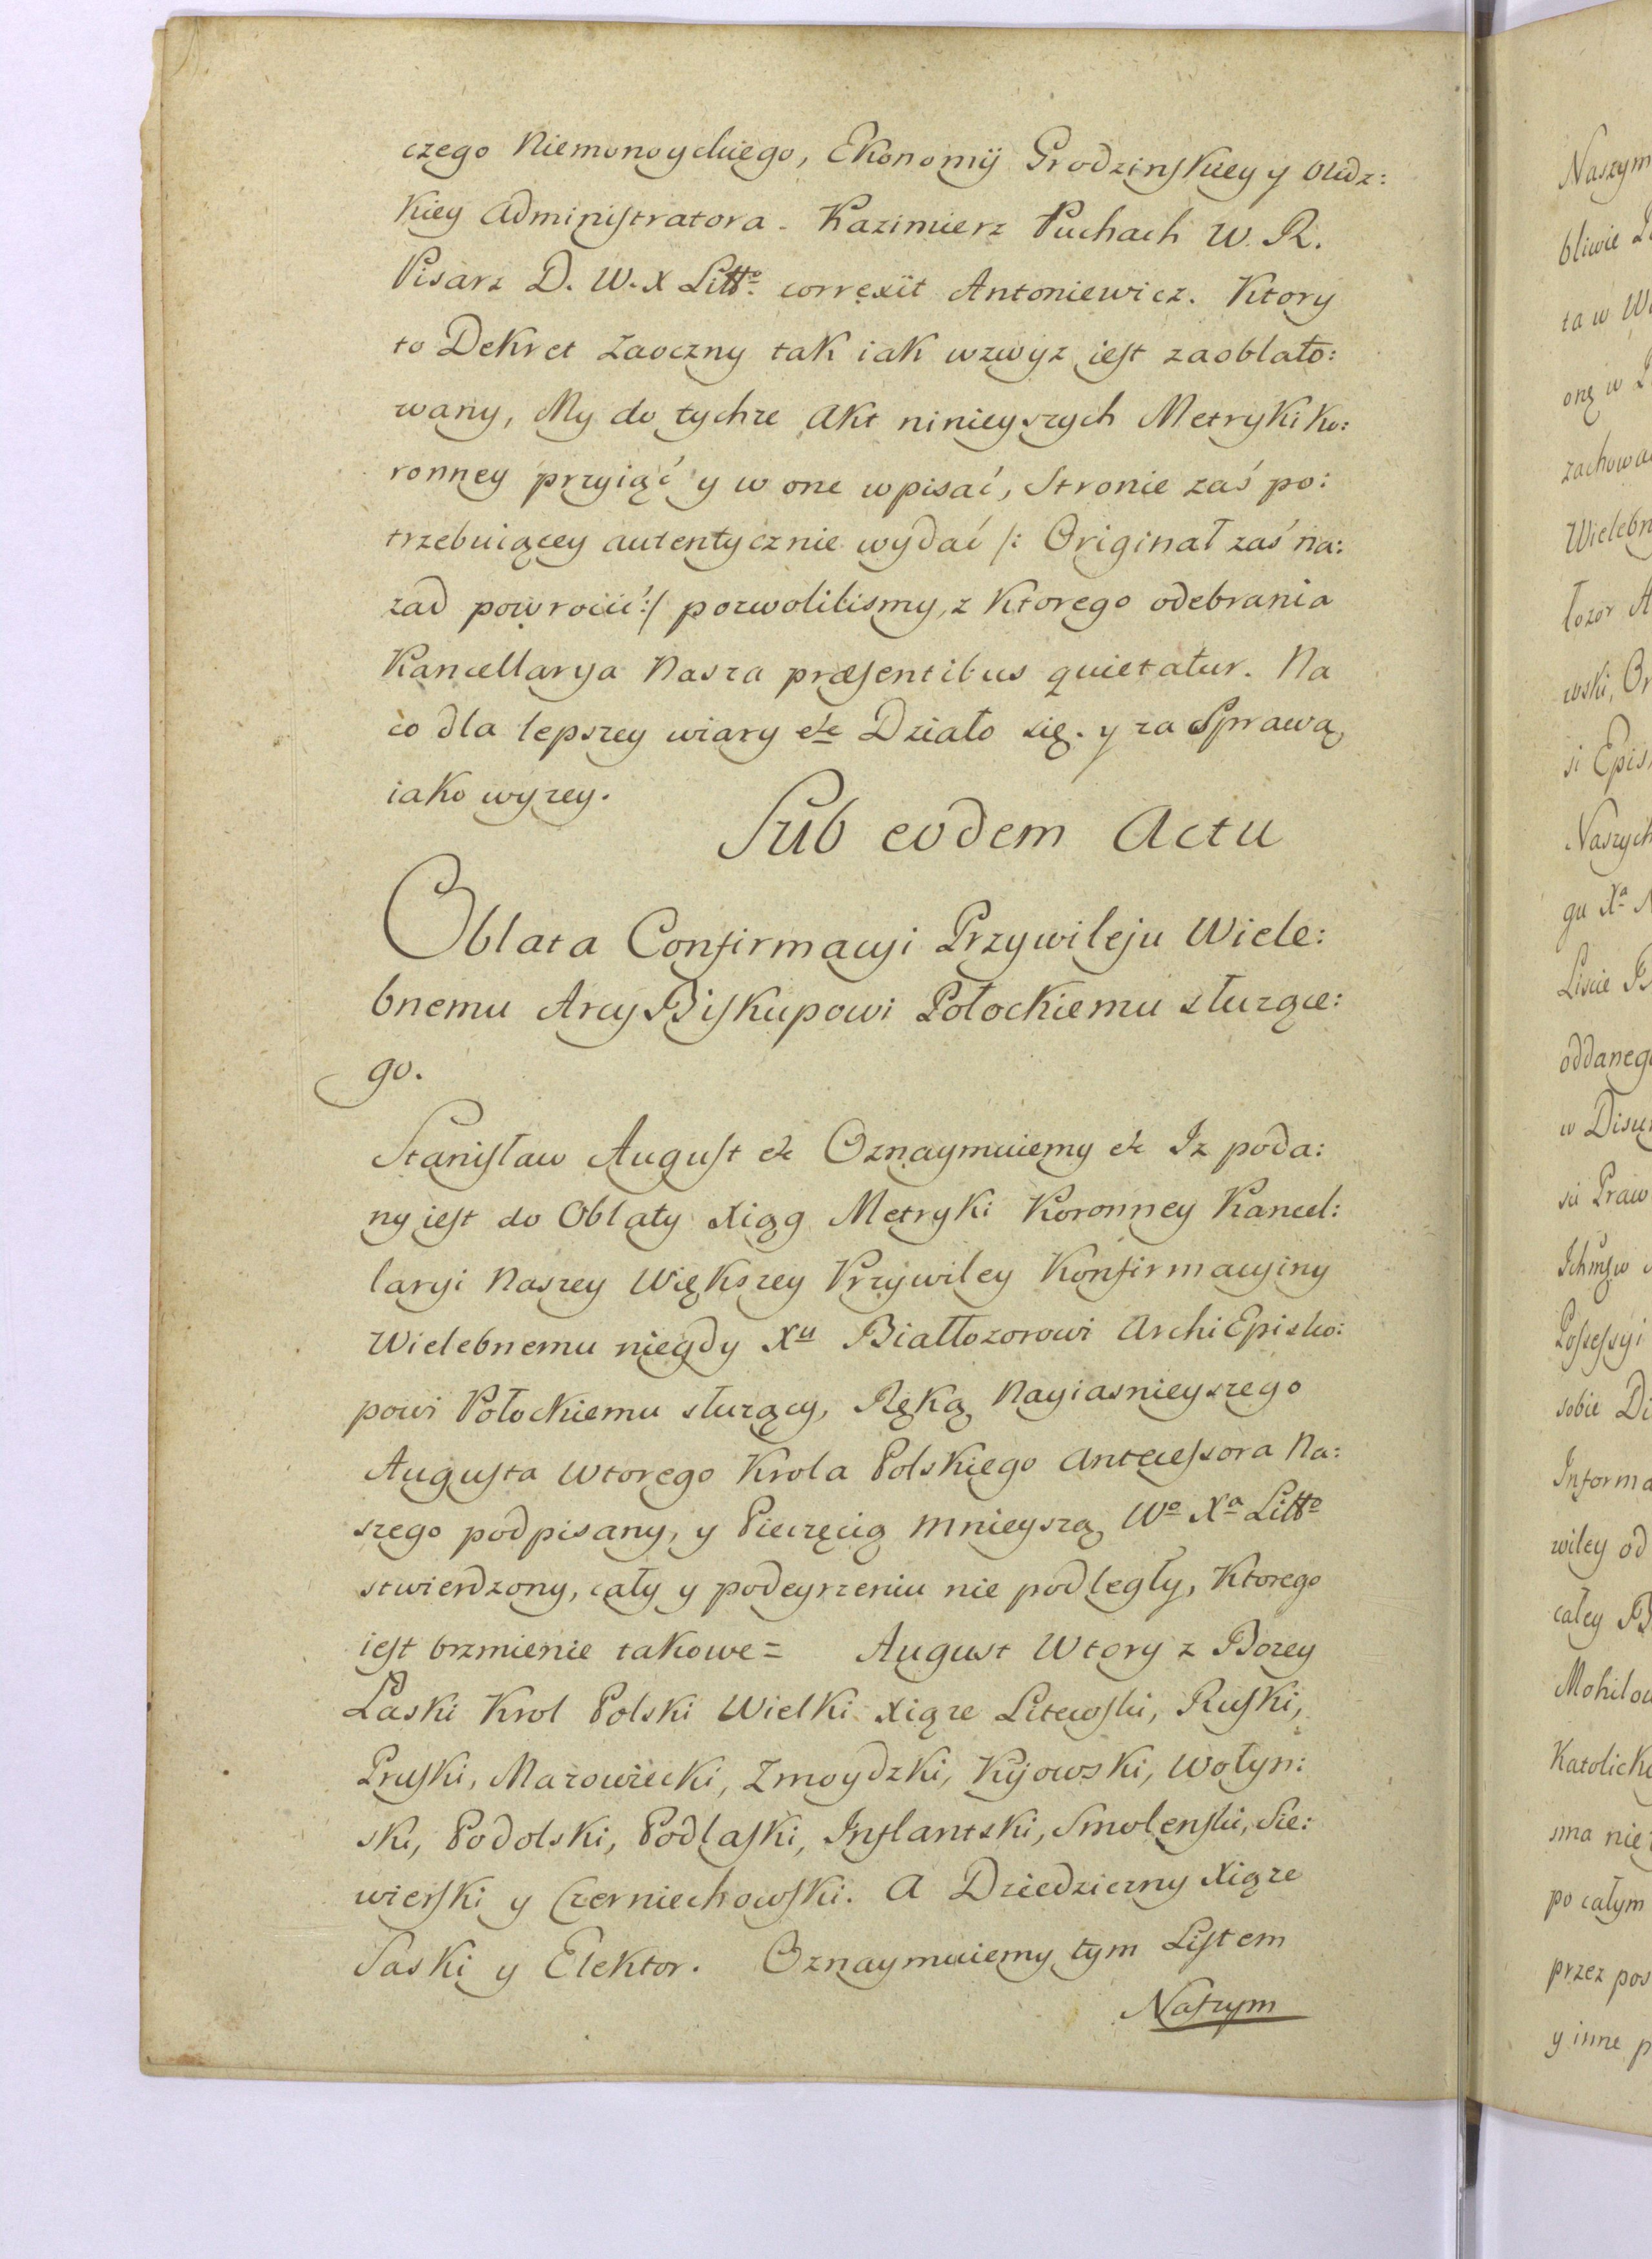 czego Niemonoyckiego, Ekonomij Grodzinskiey y Olidz:
kiey Administratora. Kazimierz Puchach W. R.
Pisarz D. W. X Litto: correxit Antoniewicz. Ktory
to Dekret Zaoczny tak iak wzwyz iest zaoblato:
wany, My do tychze Akt ninieyszych Metryki Ko:
ronney przyiąć y w one wpisać, Stronie zaś po:
trzebuiącey autentycznie wydać /: Originał zaś na:
zad powrocić :/ pozwolilismy, z Ktorego odebrania
Kancellarya Nasza præsentibus quietatur. Na
co dla lepszey wiary etc Działo się. y za Sprawą
iako wyzey.
Sub eodem Actu
Oblata Confirmacyi Przywileju Wiele:
bnemu Arcy Biskupowi Połockiemu służące:
go.
Stanisław August etc Oznaymuiemy etc Iz poda:
ny iest do Oblaty Xiąg Metryki Koronney Kancel:
laryi Naszey Większey Przywiley Konfirmacyiny
Wielebnemu niegdy Xu Białłozorowi Archi Episko:
powi Połockiemu służący, Ręką Nayiasnieyszego
Augusta Wtorego Krola Polskiego Antecessora Na:
szego podpisany, y Pieczęcią mnieyszą Wo Xa Litto
stwierdzony, cały y podeyrzeniu nie podległy, Ktorego
iest brzmienie takowe = August Wtory z Bozey
Łaski Krol Polski Wielki Xiąze Litewski, Ruski,
Pruski, Mazowiecki, Zmoydzki, Kijowski, Wołyn:
ski, Podolski, Podlaski, Inflantski, Smolenski, Sie:
wierski y Czerniechowski. A Dziedziczny Xiąze
Saski y Elektor. Oznaymuiemy tym Listem
Naszym
Naszym
bliwie
ta w
onę w
zachowa
Wielebn
łozor
wski,
si Epis
Naszych
gu Xa
Liscie
oddaneg
w
sci Praw
Possessyi
sobie
Informa
wiley od
całey
Mohilow
Katolick
sma nie
po całym
przez pos
y inne p